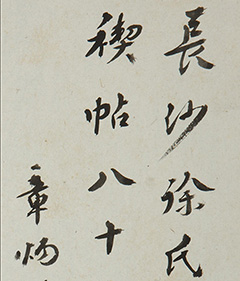 長沙徐氏
禊帖八十
章炳